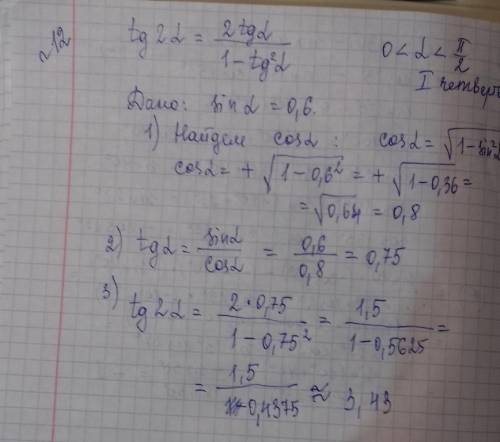 №12
tg 2α = 2 tgα / (1 - tg²α)    0 < α < π/2
I четверть
Дано: sinα = 0,6.
1) Найдем cosα : cosα = √(1-sin²α
cosα = + √(1-0,6²) = + √(1-0,36) =
= √0,64 = 0,8
2) tgα = sinα / cosα = 0,6 / 0,8 = 0,75
3) tg 2α = 2·0,75 / (1 - 0,75²) = 1,5 / (1-0,5625) =
= 1,5 / 0,4375 ≈ 3,43